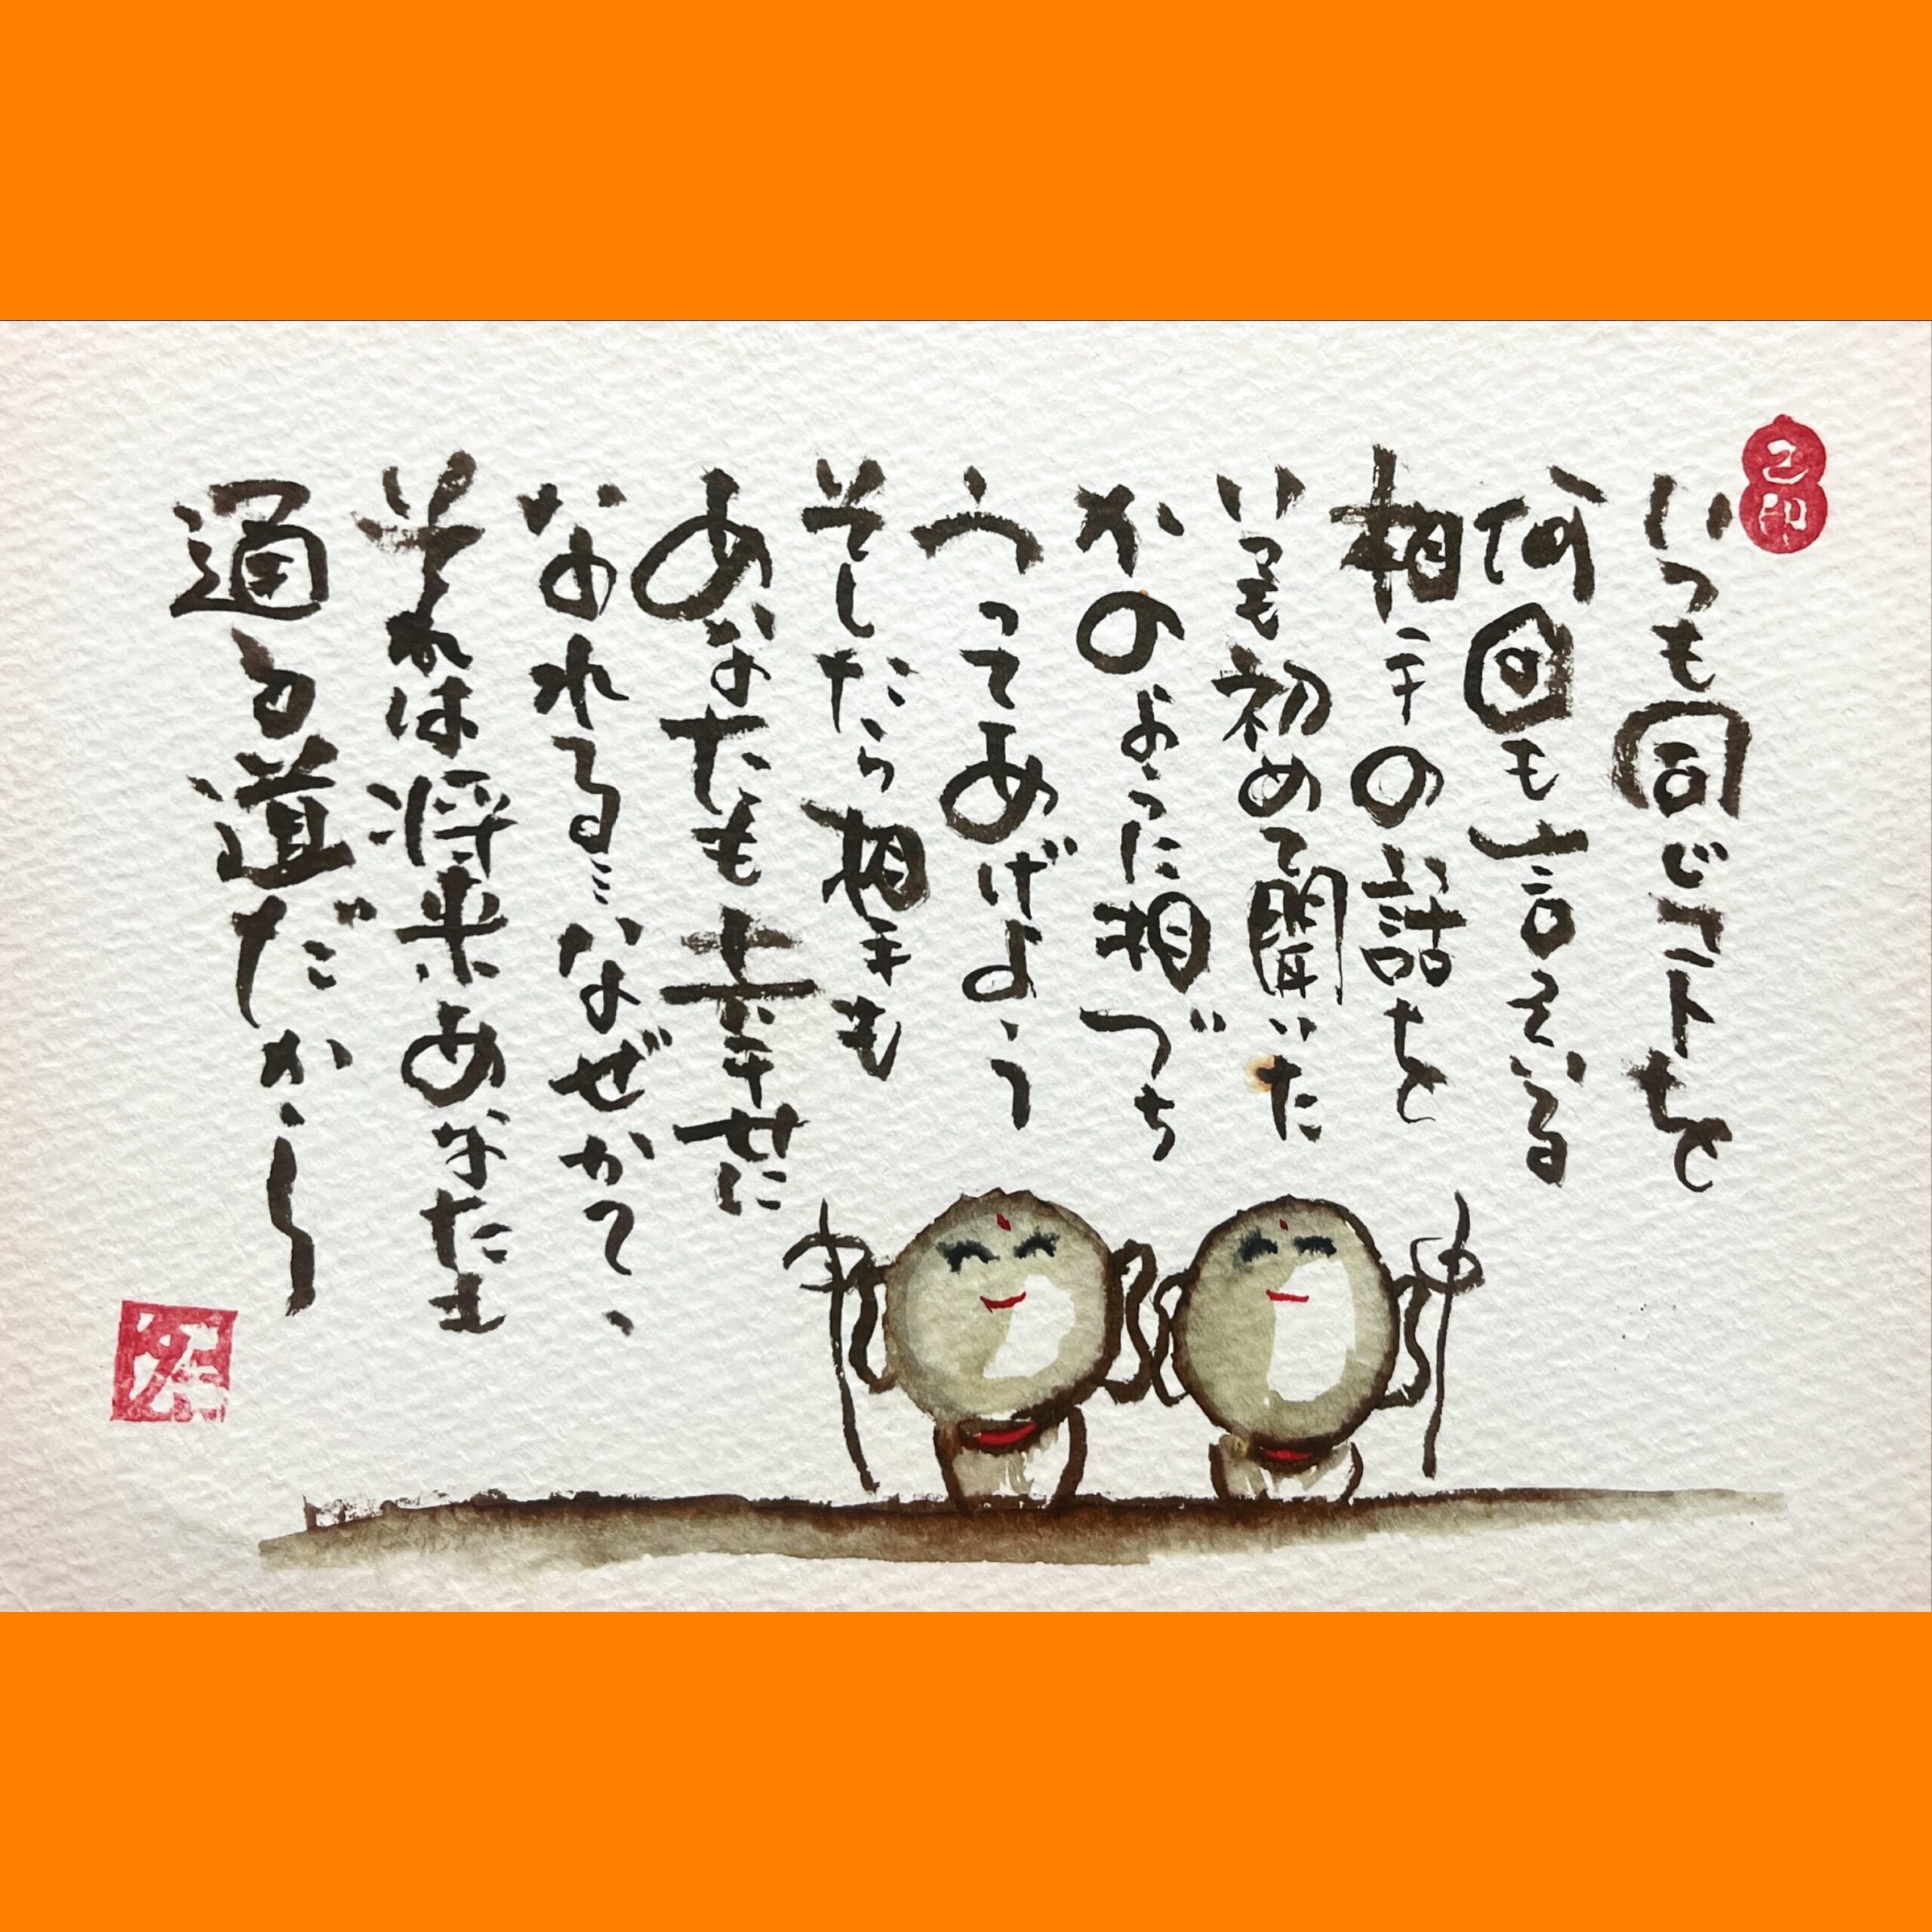 己印
いつも同じコトを
何回も言っている
相手の話を
いつも初めて聞いた
かのように相づち
うってあげよう
そしたら相手も
あなたも幸せに
なれる…なぜかって、
それは将来あなたも
通る道だから〜